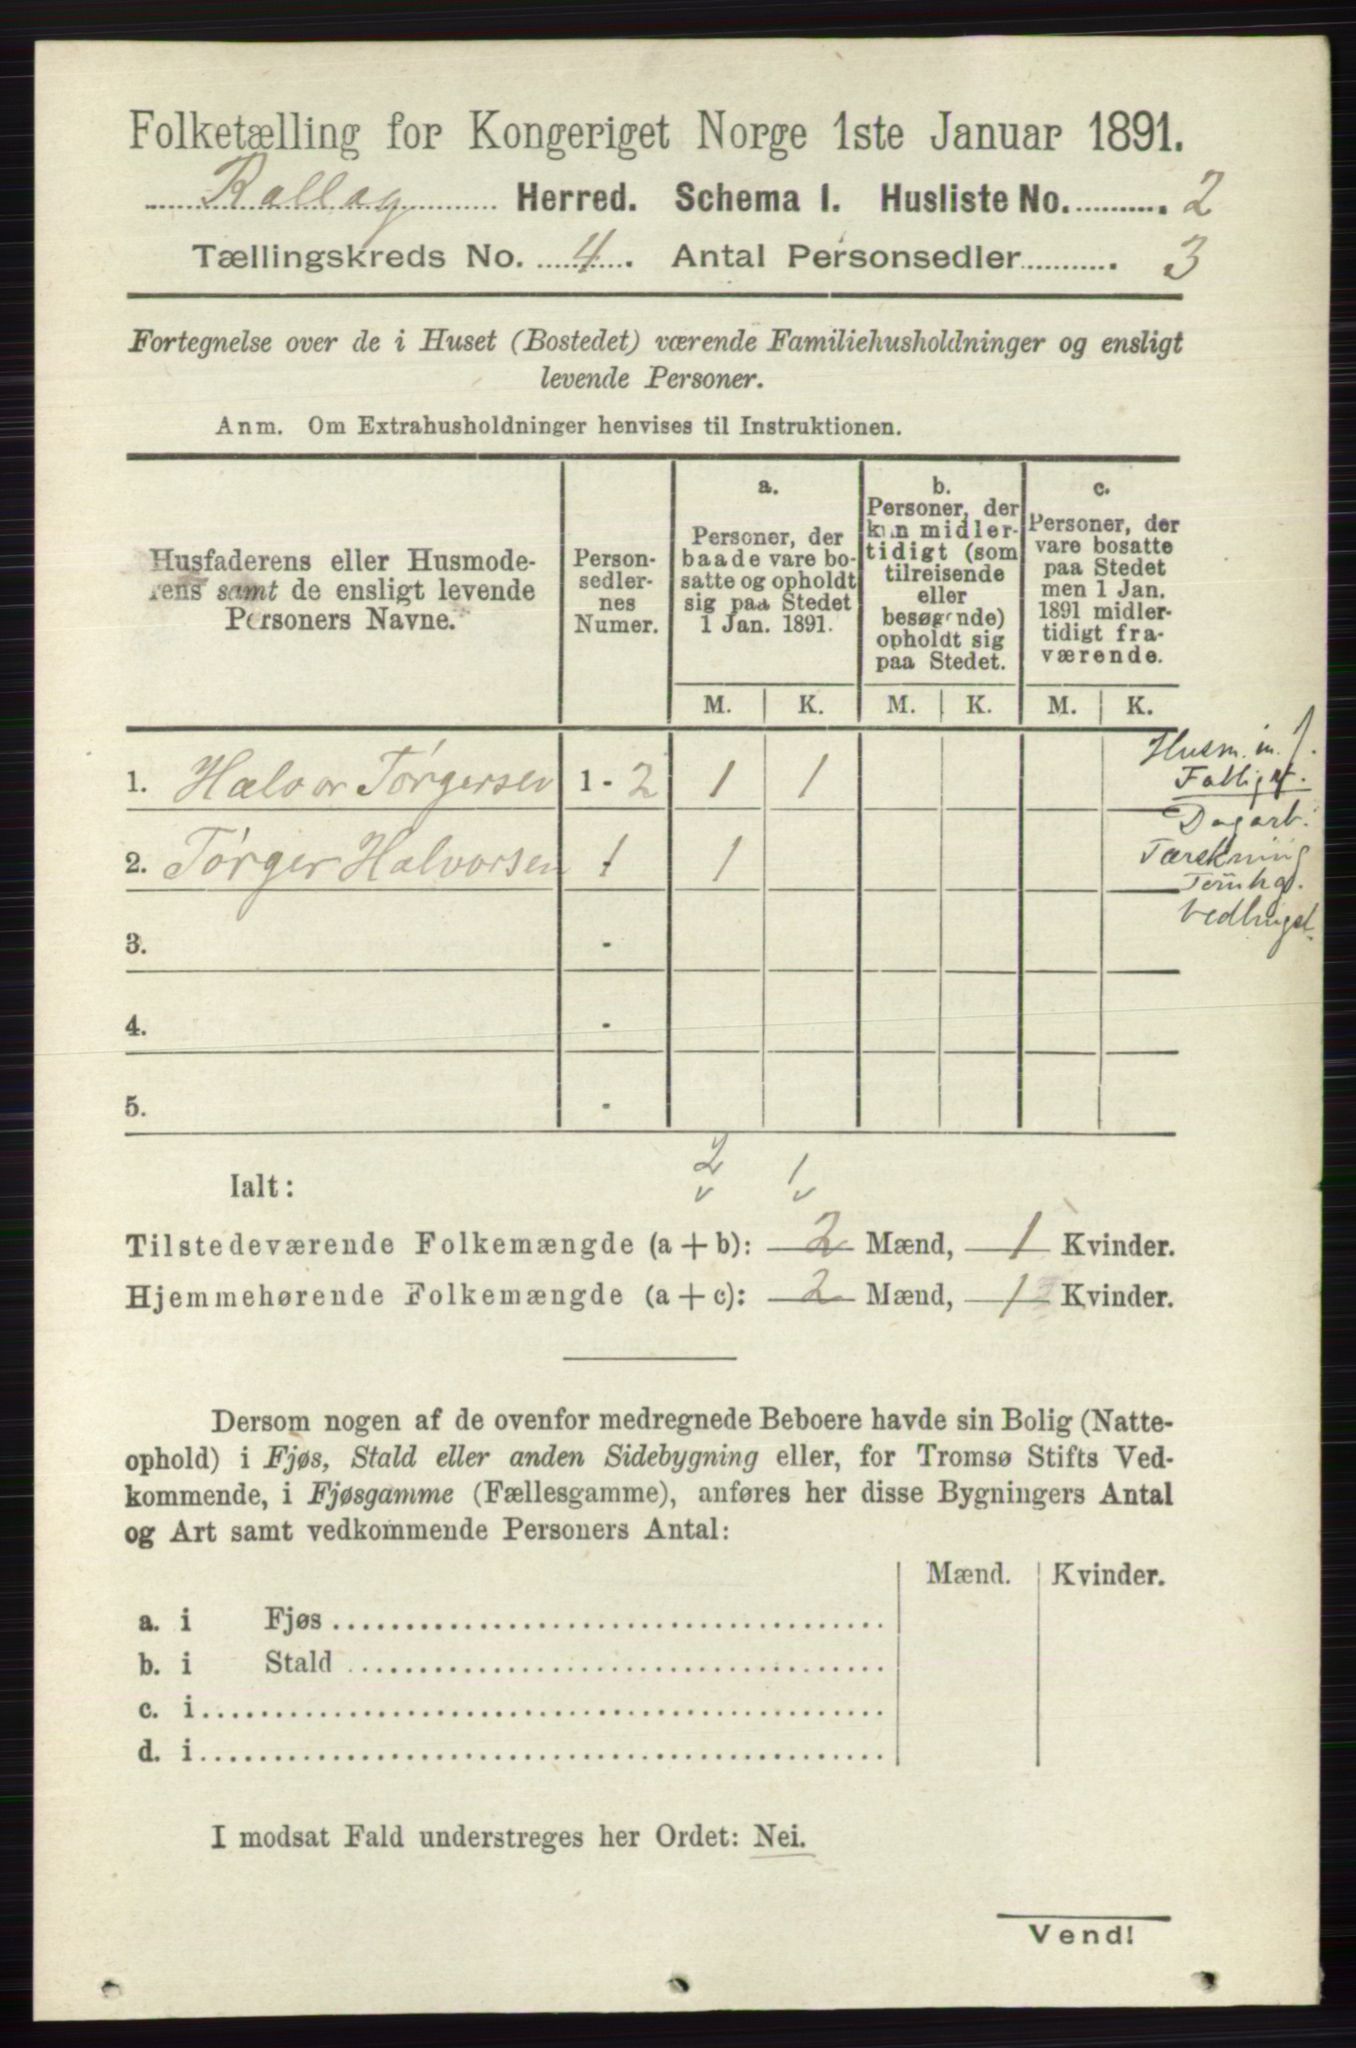 Folketælling for Kongeriget Norge 1ste Januar 1891.
Rollag Herred. Schema I. Husliste No. 2
Tællingskreds No. 4. Antal Personsedler 3
Fortegnelse over de i Huset (Bostedet) værende Familiehusholdninger og ensligt
levende Personer.
Anm. Om Extrahusholdninger henvises til Instruktionen.
Husfaderens eller Husmode-
rens samt de ensligt levende
Personers Navne.
Person-
sedler-
nes
Numer.
a.
Personer, der
baade vare bo-
satte og opholdt
sig paa Stedet
1 Jan. 1891.
b.
Personer, der
kun midler-
tidigt (som
tilreisende
eller
besøgende)
opholdt sig
paa Stedet.
c.
Personer, der
vare bosatte
paa Stedet
men 1 Jan.
1891 midler-
tidigt fra-
værende.
M. K. M. K. M. K.
1. Halvor Törgersen 1 - 2 1 1
Husm. m. J.
Fattigst.
2. Törger Halvorsen 1 1
Dagarb.
Tærskning
Tømhg.
Vedhugst.
3. -
4. -
5. -
2 1
Ialt:
Tilstedeværende Folkemængde (a + b): 2 Mænd, 1 Kvinder.
Hjemmehørende Folkemængde (a + c): 2 Mænd, 1 Kvinder.
Dersom nogen af de ovenfor medregnede Beboere havde sin Bolig (Natte-
ophold) i Fjøs, Stald eller anden Sidebygning eller, for Tromsø Stifts Ved-
kommende, i Fjøsgamme (Fællesgamme), anføres her disse Bygningers Antal
og Art samt vedkommende Personers Antal:
Mænd. Kvinder.
a. i Fjøs
b. i Stald
c. i
d. i
I modsat Fald understreges her Ordet: Nei.
Vend!